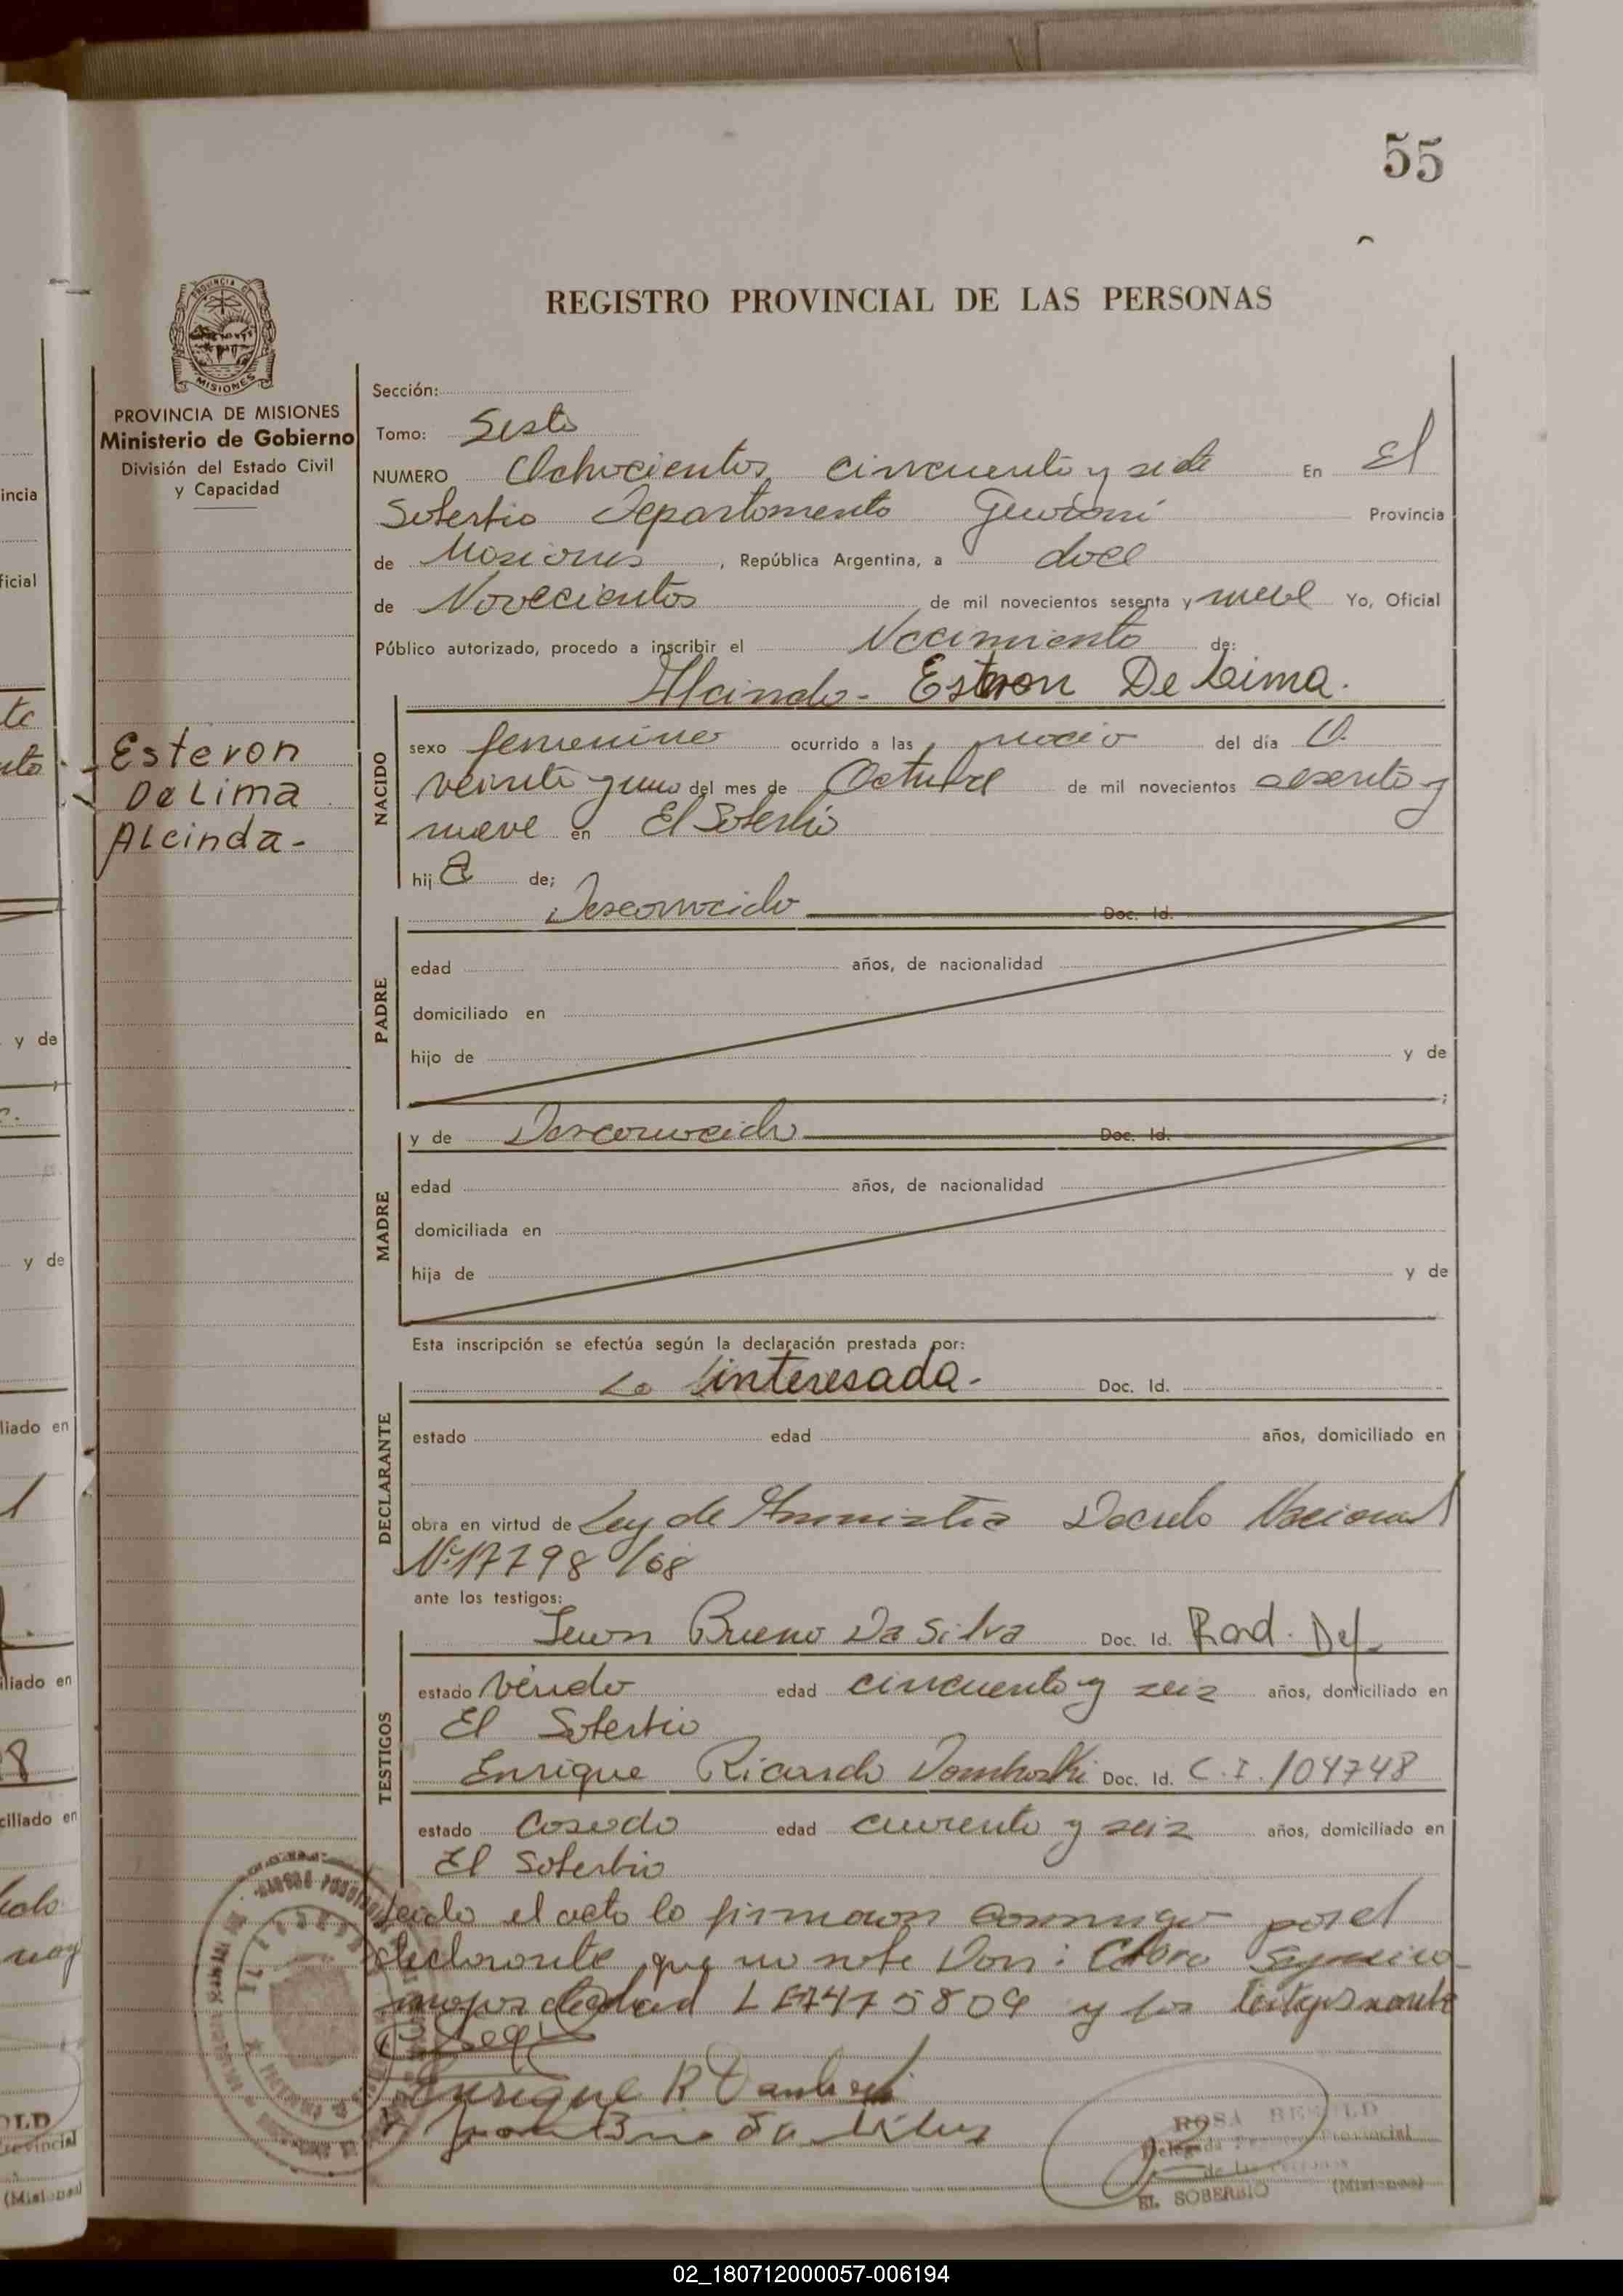 55
REGISTRO PROVINCIAL DE LAS PERSONAS
MISIONES
PROVINCIA DE MISIONES
Ministerio de Gobierno
División del Estado Civil
y Capacidad
Esteron
De Lima
Alcinda-
Sección:
Tomo: Sesto
NUMERO Ochocientos cincuenta y siete En El
Soberbio Departamento Guaraní Provincia
de Misiones, República Argentina, a doce
de Novecientos de mil novecientos sesenta y nueve Yo, Oficial
Público autorizado, procedo a inscribir el Nacimiento de:
Alcinda- Esteron De Lima.
NACIDO
sexo femenino ocurrido a las del día
veinte y uno del mes de Octubre de mil novecientos sesenta y
nueve en El Soberbio
hija de;
PADRE
Desconocido Doc. Id.
edad años, de nacionalidad
domiciliado en
hijo de y de
MADRE
y de Desconocido Doc. Id.
edad años, de nacionalidad
domiciliada en
hija de y de
Esta inscripción se efectúa según la declaración prestada por:
DECLARANTE
La interesada- Doc. Id.
estado edad años, domiciliado en
obra en virtud de Ley de Amnistia Decreto Nacional
Nº 17798/68
ante los testigos:
TESTIGOS
Juan Bueno Da Silva Doc. Id. Rad. Def.
estado viudo edad cincuenta y seis años, domiciliado en
El Soberbio
Enrique Ricardo Domhoski Doc. Id. C.I. 104748
estado Casado edad cuarenta y seis años, domiciliado en
El Soberbio
Leido el acto lo firmaron conmigo por el
declarante que no sabe Don:
mayor de edad y los testigos
Enrique R
ROSA
EL SOBERBIO (Misiones)
y de
liado en
02_180712000057-006194